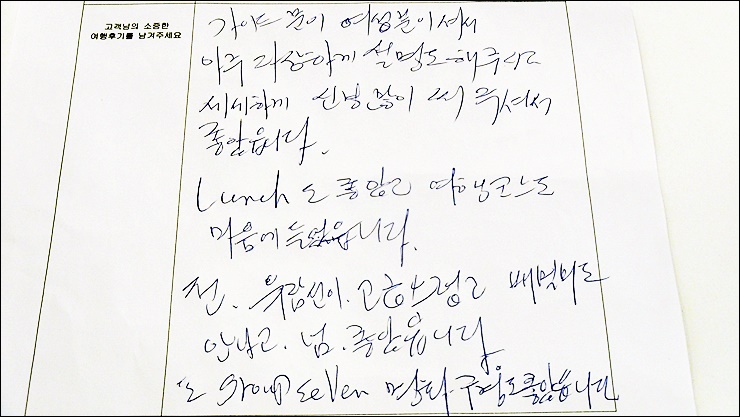 고객님의 소중한
여행후기를 남겨주세요
가이드 분이 여성분이셔서
아주 다정하게 설명도 해주시고
세세하게 신경 많이 써 주셔서
좋았읍니다.
Lunch도 좋았고 여행코스도
마음에 들었읍니다.
전. 유람선이. 고급스럽고 배멀미도
안나고. 넘. 좋았읍니다
또 Group Seven 명화 구경도 좋았읍니다